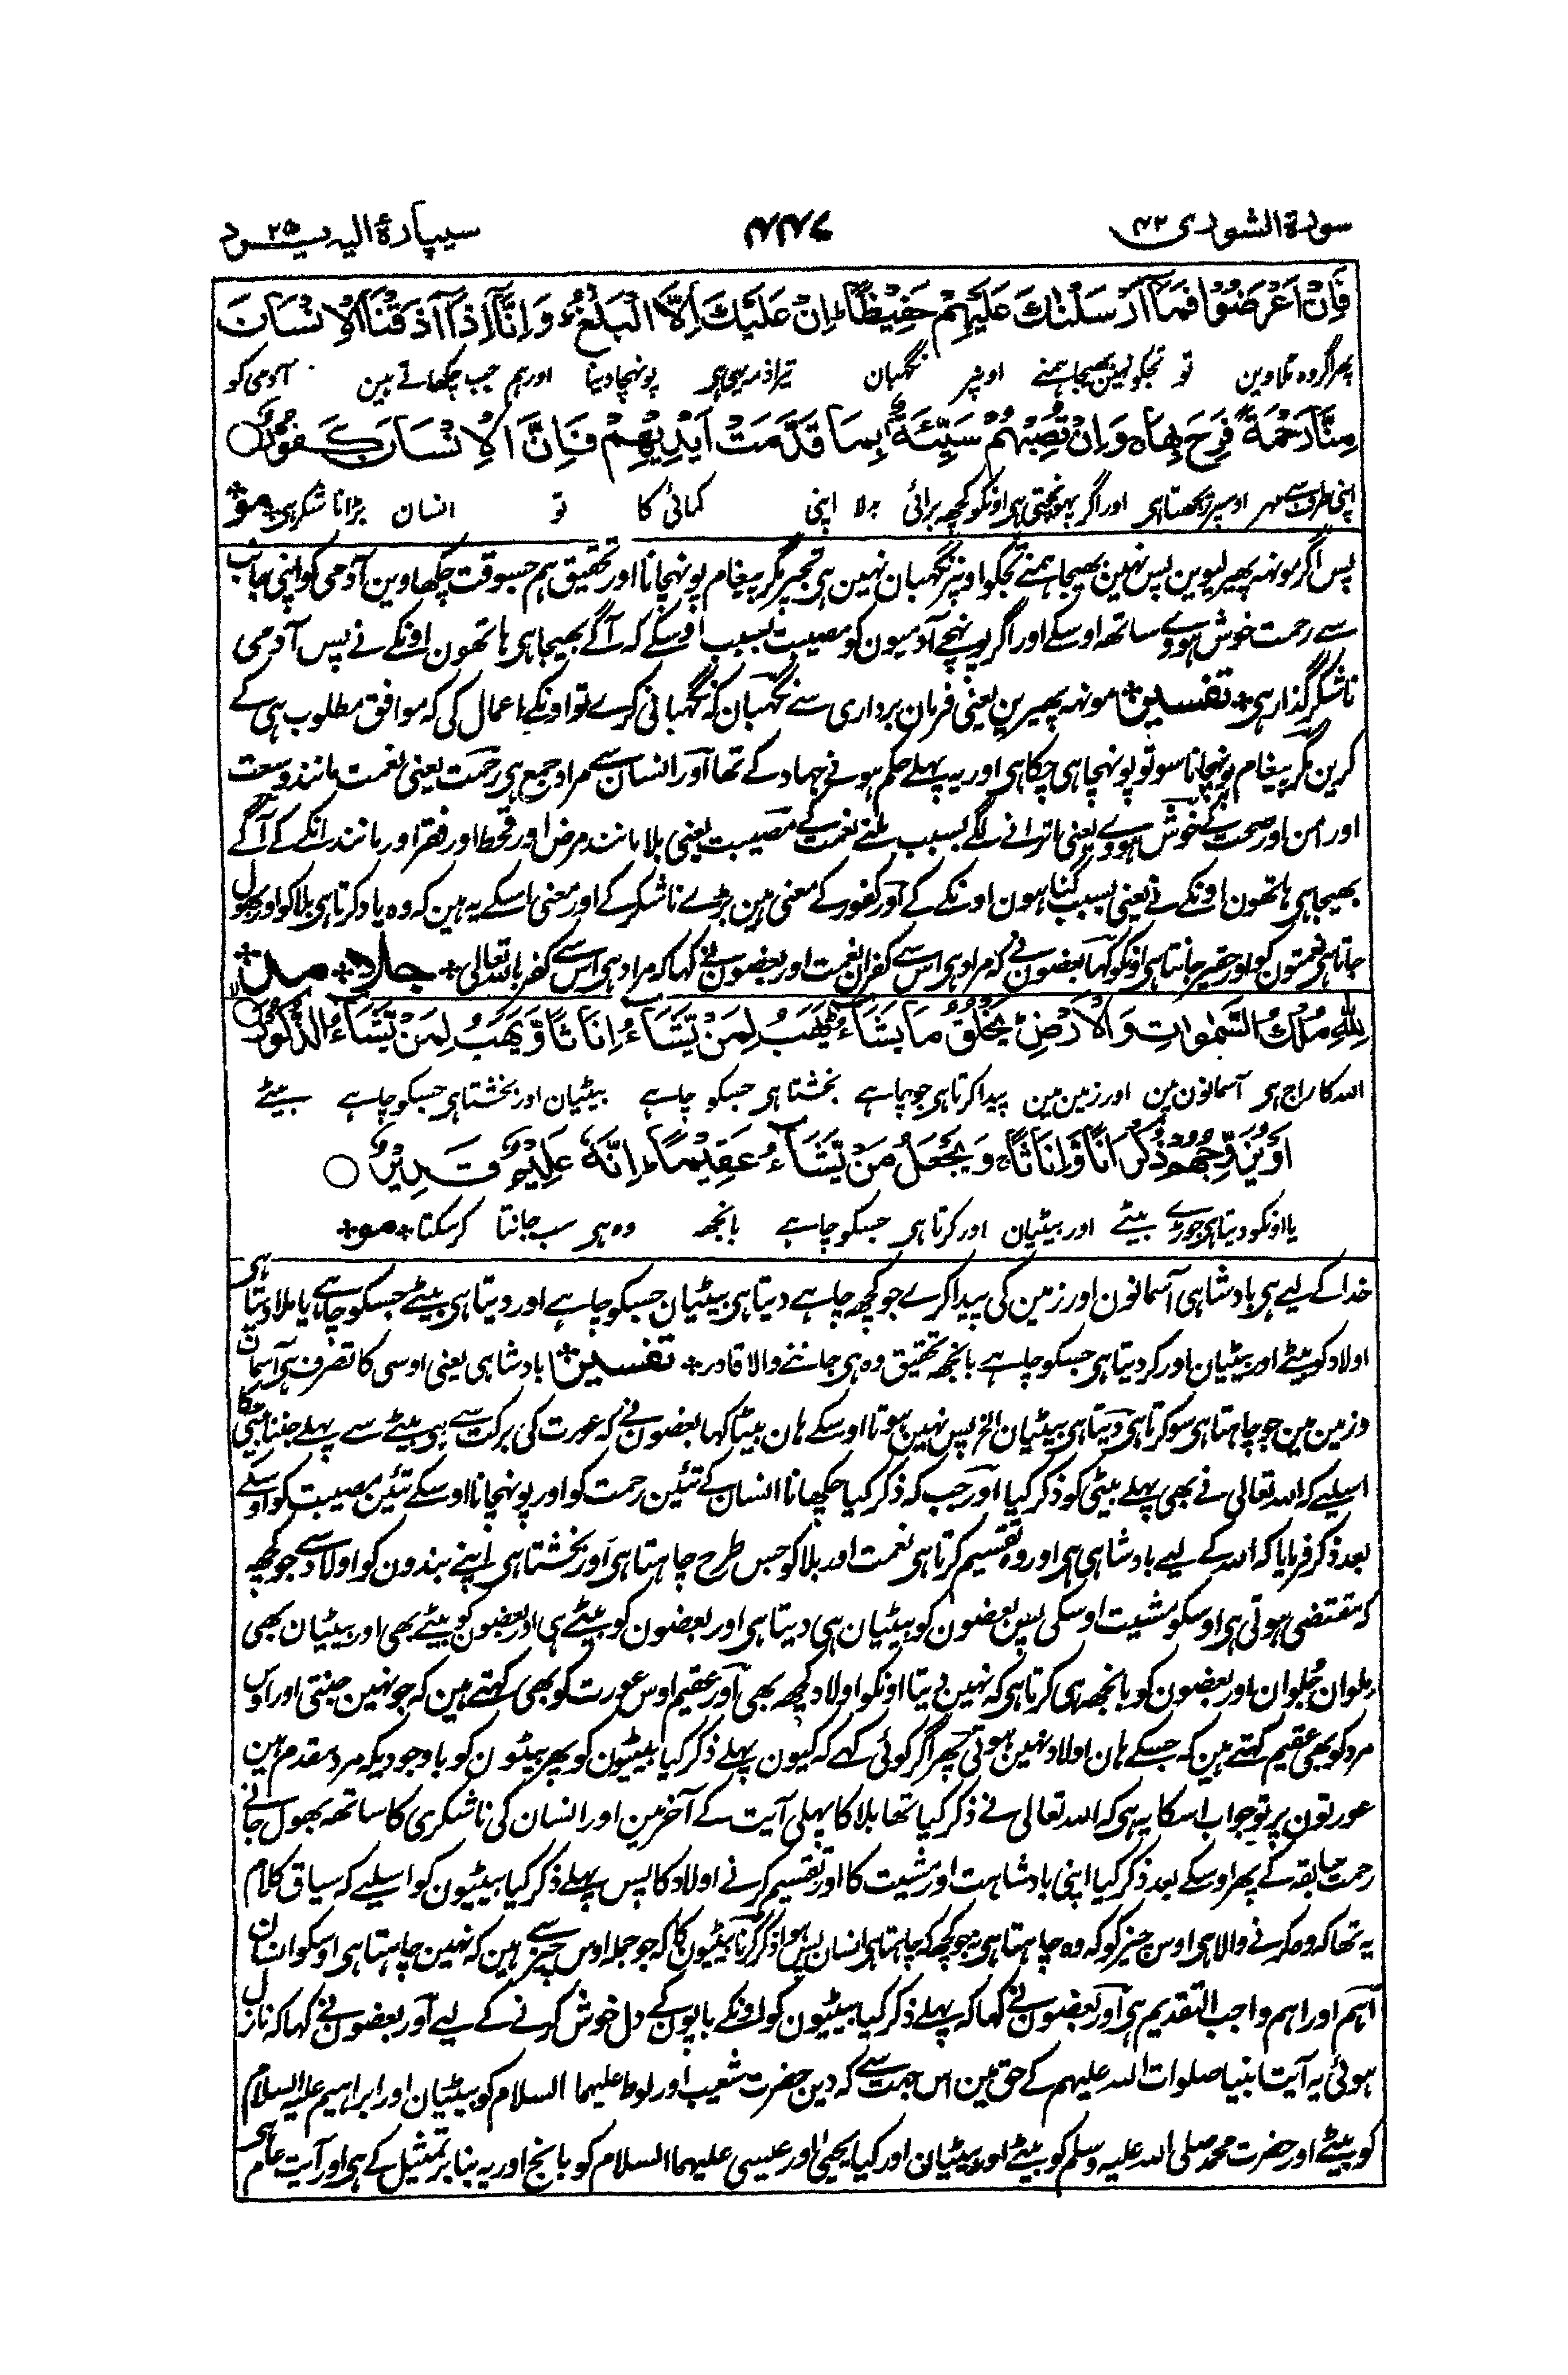 سورة الشوری ۴۲ ۴۴۷ سیپارۂ الیہ یرد ۲۵
فَاِنْ اَعْرَضُوْا فَمَاۤ اَرْسَلْنٰكَ عَلَیْهِمْ حَفِیْظًاؕ اِنْ عَلَیْكَ اِلَّا الْبَلٰغُؕ وَ اِنَّاۤ اِذَاۤ اَذَقْنَا الْاِنْسَانَ
پھر اگر وہ ٹلاوین تو تجکو نہین بھیجا ہمنے اونپر نگہبان تیرا ذمہ یہی ہی پونہچا دینا اور ہم جب چکھاتے ہین آدمی کو
مِنَّا رَحْمَةً فَرِحَ بِهَاۚ وَ اِنْ تُصِبْهُمْ سَیِّئَةٌۢ بِمَا قَدَّمَتْ اَیْدِیْهِمْ فَاِنَّ الْاِنْسَانَ كَفُوْرٌ
اپنی طرف سے مہر اوسپر ریجھتا ہی اور اگر پہونچتی ہی اونکو کچھ برائی بدلا اپنی کمائی کا تو انسان بڑا نا شکر ہی * مو *
پس اگر مونہہ پھیر لیوین پس نہین بھیجا ہمنے تجکو اونپر نگہبان نہین ہی تجپر مگر پیغام پونہچانا اور تحقیق ہم جسوقت چکھاوین آدمی کو اپنی جانب
سے رحمت خوش ہووے ساتھ اوسکے اور اگر پہنچے آدمیون کو مصیبت بسبب اوسکے کہ آگے بھیجا ہی ہاتھون اونکے نے پس آدمی
ناشکر گذار ہی * تفسیر * مونہہ پھیرین یعنی فرمان برداری سے نگہبان کہ نگہبانی کرے تو اونکے اعمال کی کہ موافق مطلوب ہی کے
کرین مگر پیغام پونہچانا سو تو پونہچا ہی چکا ہی اور یہ پہلے حکم ہونے جہاد کے تھا اور انسان سے مراد جمع ہی رحمت یعنی نعمت مانند وسعت
اور امن اور صحت کے خوش ہووے یعنی اترانے لگے بسبب ملنے نعمت کے مصیبت یعنی بلا مانند مرض اور قحط اور فقر اور مانند انکے کے آگے
بھیجا ہی ہاتھون اونکے نے یعنی بسبب گناہون اونکے کے اور کفور کے معنی ہین بڑے ناشکر کے اور معنی اسکے یہ ہین کہ وہ یاد کرتا ہی بلا کو اور بھول
جاتا ہی نعمتون کو اور حقیر جانتا ہی اونکو کہا بعضون نے کہ مراد ہی اس سے کفران نعمت اور بعضون نے کہا کہ مراد ہی اس سے کفر باللہ تعالی * جلا * مد *
لِلّٰهِ مُلْكُ السَّمٰوٰتِ وَ الْاَرْضِؕ یَخْلُقُ مَا یَشَآءُؕ یَهَبُ لِمَنْ یَّشَآءُ اِنَاثًا وَّ یَهَبُ لِمَنْ یَّشَآءُ الذُّكُوْرَ
اللہ کا راج ہی آسمانون مین اور زمین مین پیدا کرتا ہی جو چاہے بخشتا ہی جسکو چاہے بیٹیان اور بخشتا ہی جسکو چاہے بیٹے
اَوْ یُزَوِّجُهُمْ ذُكْرَانًا وَّ اِنَاثًاۚ وَ یَجْعَلُ مَنْ یَّشَآءُ عَقِیْمًاؕ اِنَّهٗ عَلِیْمٌ قَدِیْرٌ
یا اونکو دیتا ہی جوڑے بیٹے اور بیٹیان اور کرتا ہی جسکو چاہے بانجھ وہ ہی سب جانتا کر سکتا * مو *
خدا کے لیے ہی بادشاہی آسمانون اور زمین کی پیدا کرے جو کچھ چاہے دیتا ہی بیٹیان جسکو چاہے اور دیتا ہی بیٹے جسکو چاہے یا ملا دیتا ہی
اولاد کو بیٹے اور بیٹیان اور کر دیتا ہی جسکو چاہے بانجھ تحقیق وہ ہی جاننے والا قادر * تفسیر * بادشاہی یعنی اوسی کا تصرف ہی آسمان
و زمین مین جو چاہتا ہی سو کرتا ہی دیتا ہی بیٹیان الخ پس نہین ہوتا اوسکے ہان بیٹا کہا بعضون نے کہ عورت کی برکت سے ہی بیٹے سے پہلے جننا بیٹی کا
اسلیے کہ اللہ تعالی نے بھی پہلے بیٹی کو ذکر کیا اور جب کہ ذکر کیا چکھانا انسان کے تئین رحمت کو اور پونہچانا اوسکے تئین مصیبت کو اوسکے
بعد ذکر فرمایا کہ اللہ کے لیے بادشاہی ہی اور وہ تقسیم کرتا ہی نعمت اور بلا کو جس طرح چاہتا ہی اور بخشتا ہی اپنے بندون کو اولاد سے جو کچھ
کہ مقتضی ہوتی ہی اوسکو مشیت اوسکی پس بعضون کو بیٹیان ہی دیتا ہی اور بعضون کو بیٹے ہی اور بعضون کو بیٹے بھی اور بیٹیان بھی
ملوان جلوان اور بعضون کو بانجھ ہی کرتا ہی کہ نہین دیتا اونکو اولاد کچھ بھی اور عقیم اوس عورت کو بھی کہتے ہین کہ جو نہین جنتی اور اوس
مرد کو بھی عقیم کہتے ہین کہ جسکے ہان اولاد نہین ہوتی پھر اگر کوئی کہے کہ کیون پہلے ذکر کیا بیٹیون کو پھر بیٹون کو باوجودیکہ مرد مقدم ہین
عورتون پر تو جواب اسکا یہ ہی کہ اللہ تعالی نے ذکر کیا تھا بلا کا پہلی آیت کے آخر مین اور انسان کی ناشکری کا ساتھ بھول جانے
رحمت سابقہ کے پھر اوسکے بعد ذکر کیا اپنی بادشاہت اور مشیت کا اور تقسیم کرنے اولاد کا پس پہلے ذکر کیا بیٹیون کو اسلیے کہ سیاق کلام
یہ تھا کہ وہ کرنے والا ہی اوس چیز کو کہ وہ چاہتا ہی نہ جو کچھ کہ چاہتا ہی انسان پس ہوا ذکر کرنا بیٹیون کا کہ جو جملہ اوس چیز سے ہین کہ نہین چاہتا ہی اوسکو انسان
اہم اور اہم واجب التقدیم ہی اور بعضون نے کہا کہ پہلے ذکر کیا بیٹیون کو اونکے باپون کے دل خوش کرنے کے لیے اور بعضون نے کہا کہ نازل
ہوئی یہ آیت انبیا صلوات اللہ علیہم کے حق مین اس جہت سے کہ دین حضرت شعیب اور لوط علیہما السلام کو بیٹیان اور ابراہیم علیہ السلام
کو بیٹے اور حضرت محمد صلی اللہ علیہ وسلم کو بیٹے اور بیٹیان اور کیا یحییٰ اور عیسی علیہما السلام کو بانجھ اور یہ بنا بر تمثیل کے ہی اور آیت عام ہی